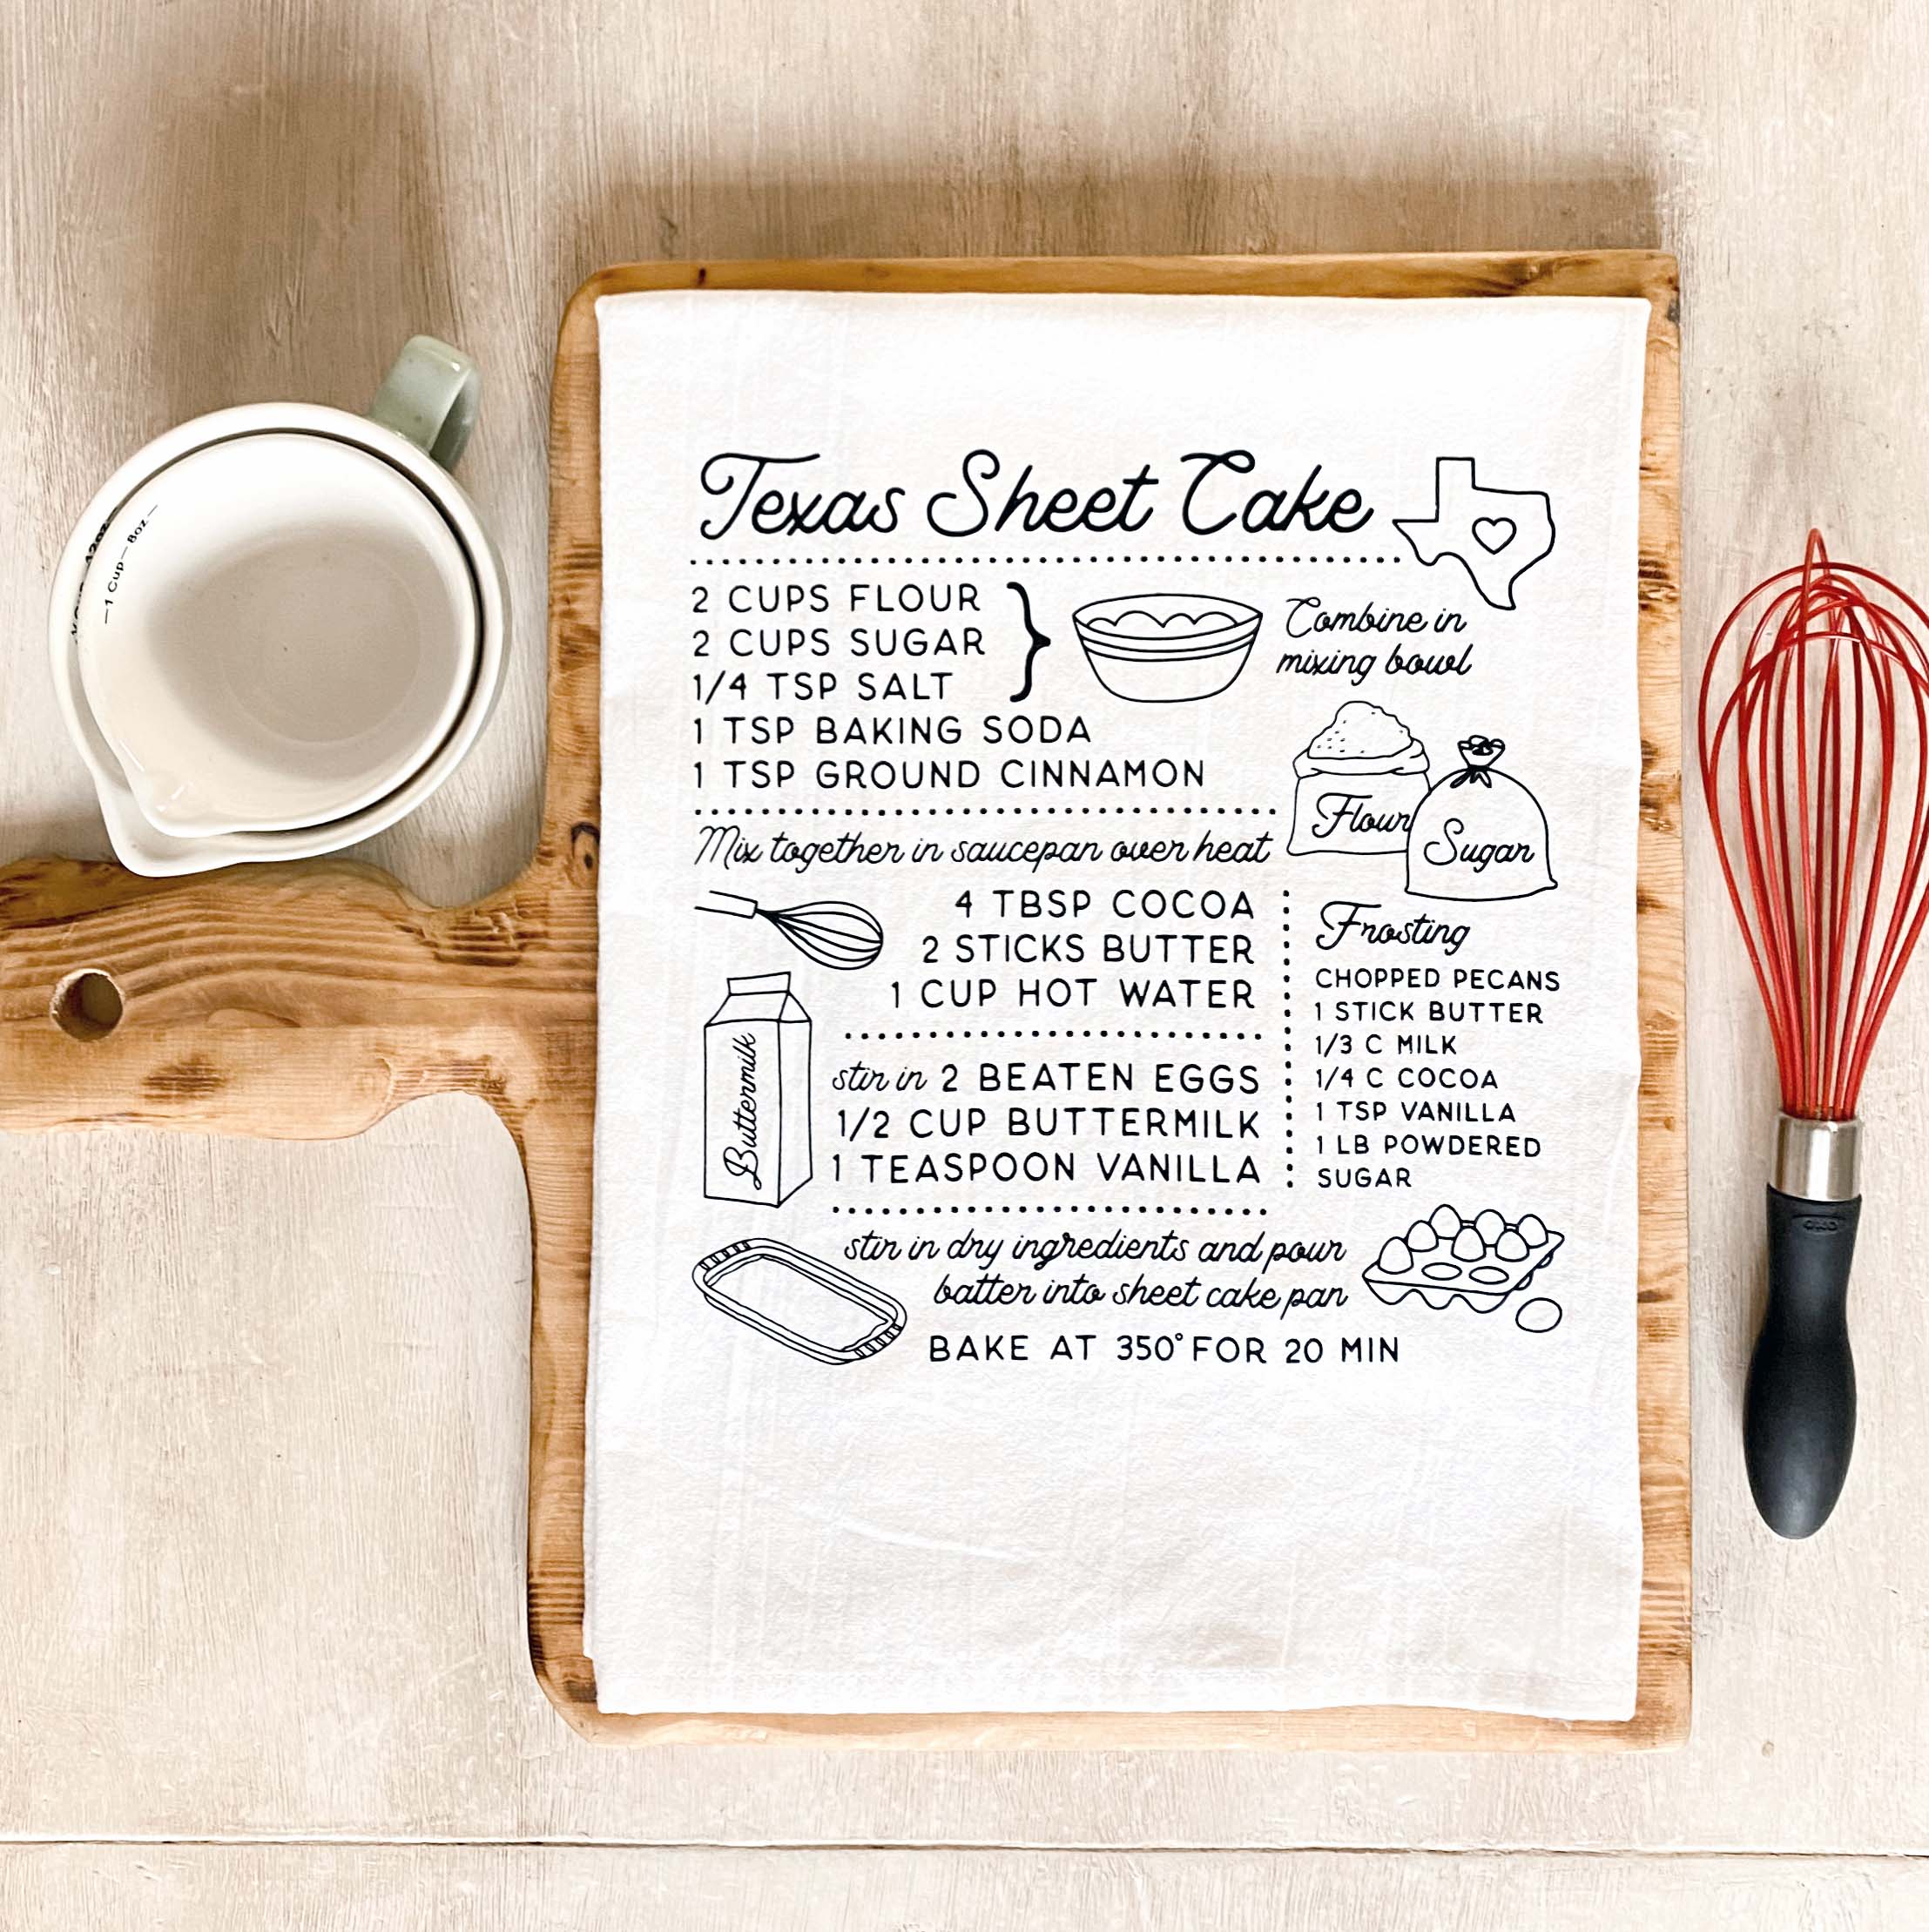 Texas Sheet Cake
2 CUPS FLOUR
2 CUPS SUGAR
1/4 TSP SALT
1 TSP BAKING SODA
1 TSP GROUND CINNAMON
Combine in
mixing bowl
Flour
Sugar
Mix together in saucepan over heat
4 TBSP COCOA
2 STICKS BUTTER
1 CUP HOT WATER
Buttermilk
stir in 2 BEATEN EGGS
1/2 CUP BUTTERMILK
1 TEASPOON VANILLA
Frosting
CHOPPED PECANS
1 STICK BUTTER
1/3 C MILK
1/4 C COCOA
1 TSP VANILLA
1 LB POWDERED
SUGAR
stir in dry ingredients and pour
batter into sheet cake pan
BAKE AT 350° FOR 20 MIN
—1 Cup— 8oz—
12oz
OXO